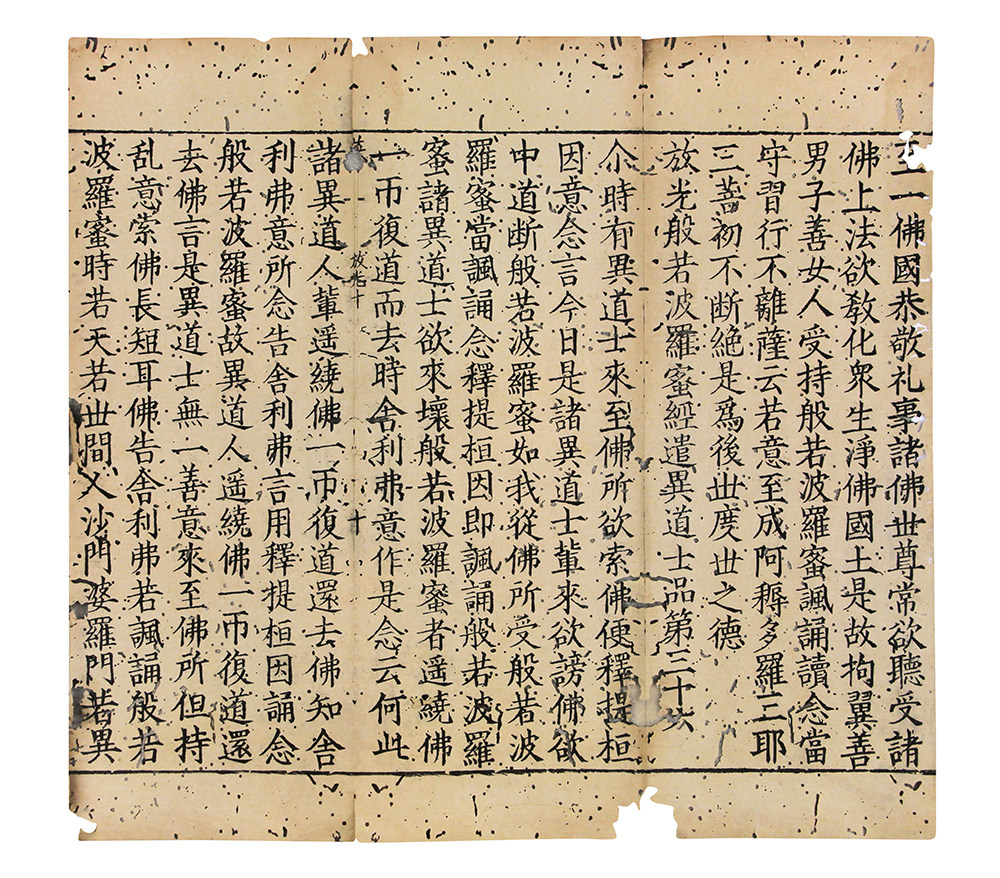 至一佛國恭敬礼事諸佛世尊常欲聽受諸
佛上法欲教化眾生淨佛國土是故拘翼善
男子善女人受持般若波羅蜜諷誦讀念當
守習行不離薩云若意至成阿耨多羅三耶
三菩初不断絶是爲後世度世之德
放光般若波羅蜜經遣異道士品第三十六
尒時有異道士來至佛所欲索佛便釋提桓
因意念言今日是諸異道士輩來欲謗佛欲
中道断般若波羅蜜如我從佛所受般若波
羅蜜當諷誦念釋提桓因即諷誦般若波羅
蜜諸異道士欲來壞般若波羅蜜者遥繞佛
一帀復道而去時舍利弗意作是念云何此
放光十
十
諸異道人輩遥繞佛一帀復道還去佛知舍
利弗意所念告舍利弗言用釋提桓因誦念
般若波羅蜜故異道人遥繞佛一帀復道還
去佛言是異道士無一善意來至佛所但持
乱意索佛長短耳佛告舍利弗若諷誦般若
波羅蜜時若天若世間人沙門婆羅門若異